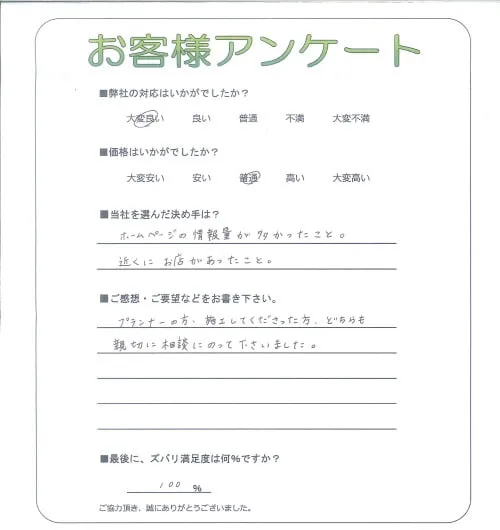 お客様アンケート
■弊社の対応はいかがでしたか？
大変良い 良い 普通 不満 大変不満
■価格はいかがでしたか？
大変安い 安い 普通 高い 大変高い
■当社を選んだ決め手は？
ホームページの情報量が多かったこと。
近くにお店があったこと。
■ご感想・ご要望などをお書き下さい。
プランナーの方、施工してくださった方、どちらも
親切に相談にのって下さいました。
■最後に、ズバリ満足度は何%ですか？
100 %
ご協力頂き、誠にありがとうございました。